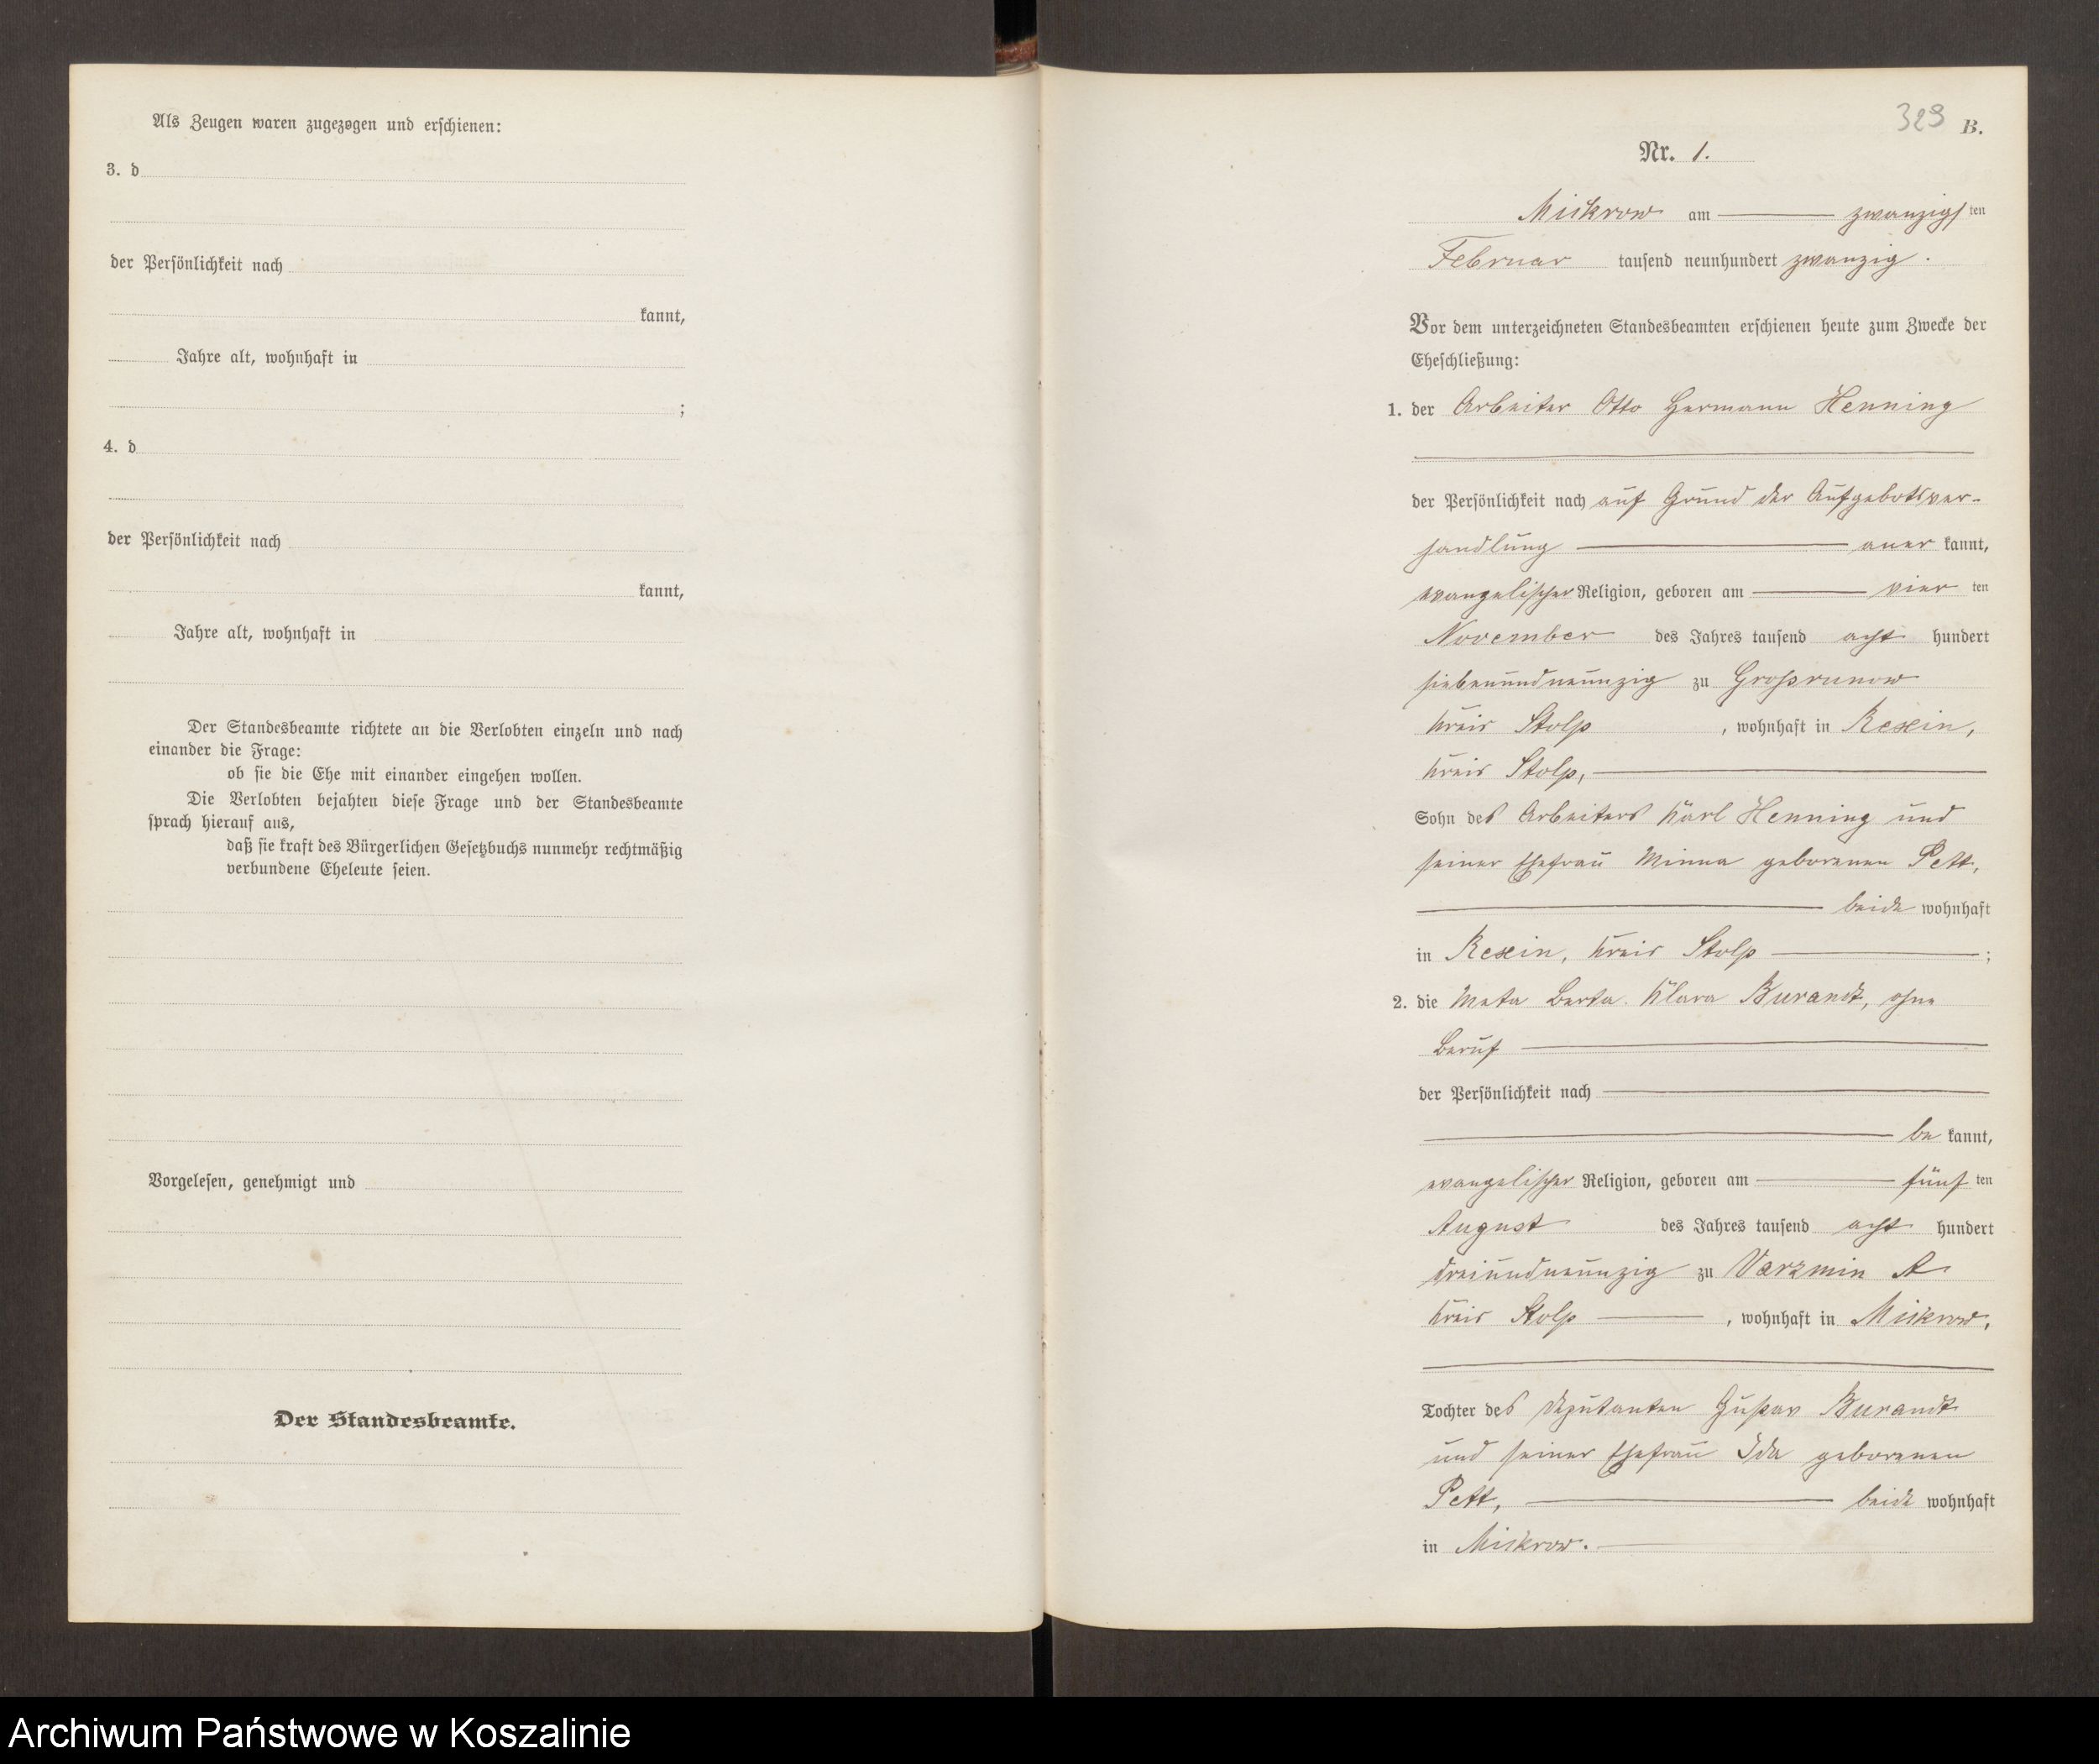 Als Zeugen waren zugezogen und erschienen:
3. d
der Persönlichkeit nach
kannt,
Jahre alt, wohnhaft in
;
4. d
der Persönlichkeit nach
kannt,
Jahre alt, wohnhaft in
Der Standesbeamte richtete an die Verlobten einzeln und nach
einander die Frage:
ob sie die Ehe mit einander eingehen wollen.
Die Verlobten bejahten diese Frage und der Standesbeamte
sprach hierauf aus,
daß sie kraft des Bürgerlichen Gesetzbuchs nunmehr rechtmäßig
verbundene Eheleute seien.
Vorgelesen, genehmigt und
Der Standesbeamte.
329 B.
Nr. 1.
Mickrow am zwanzigsten
Februar tausend neunhundert zwanzig.
Vor dem unterzeichneten Standesbeamten erschienen heute zum Zwecke der
Eheschließung:
1. der Arbeiter Otto Hermann Henning
der Persönlichkeit nach auf Grund der Aufgebotsver-
handlung anerkannt,
evangelischer Religion, geboren am vierten
November des Jahres tausend achthundert
siebenundneunzig zu Großrunow
Kreis Stolp, wohnhaft in Rexin,
Kreis Stolp,
Sohn des Arbeiters Karl Henning und
seiner Ehefrau Minna geborenen Pett,
beide wohnhaft
in Rexin, Kreis Stolp ;
2. die Meta Berta Klara Burandt, ohne
Beruf
der Persönlichkeit nach
bekannt,
evangelischer Religion, geboren am fünften
August des Jahres tausend achthundert
dreiundneunzig zu Varzmin A
Kreis Stolp, wohnhaft in Mickrow,
Tochter des Deputanten Gustav Burandt
und seiner Ehefrau Ida geborenen
Pett, beide wohnhaft
in Mickrow.
Archiwum Państwowe w Koszalinie